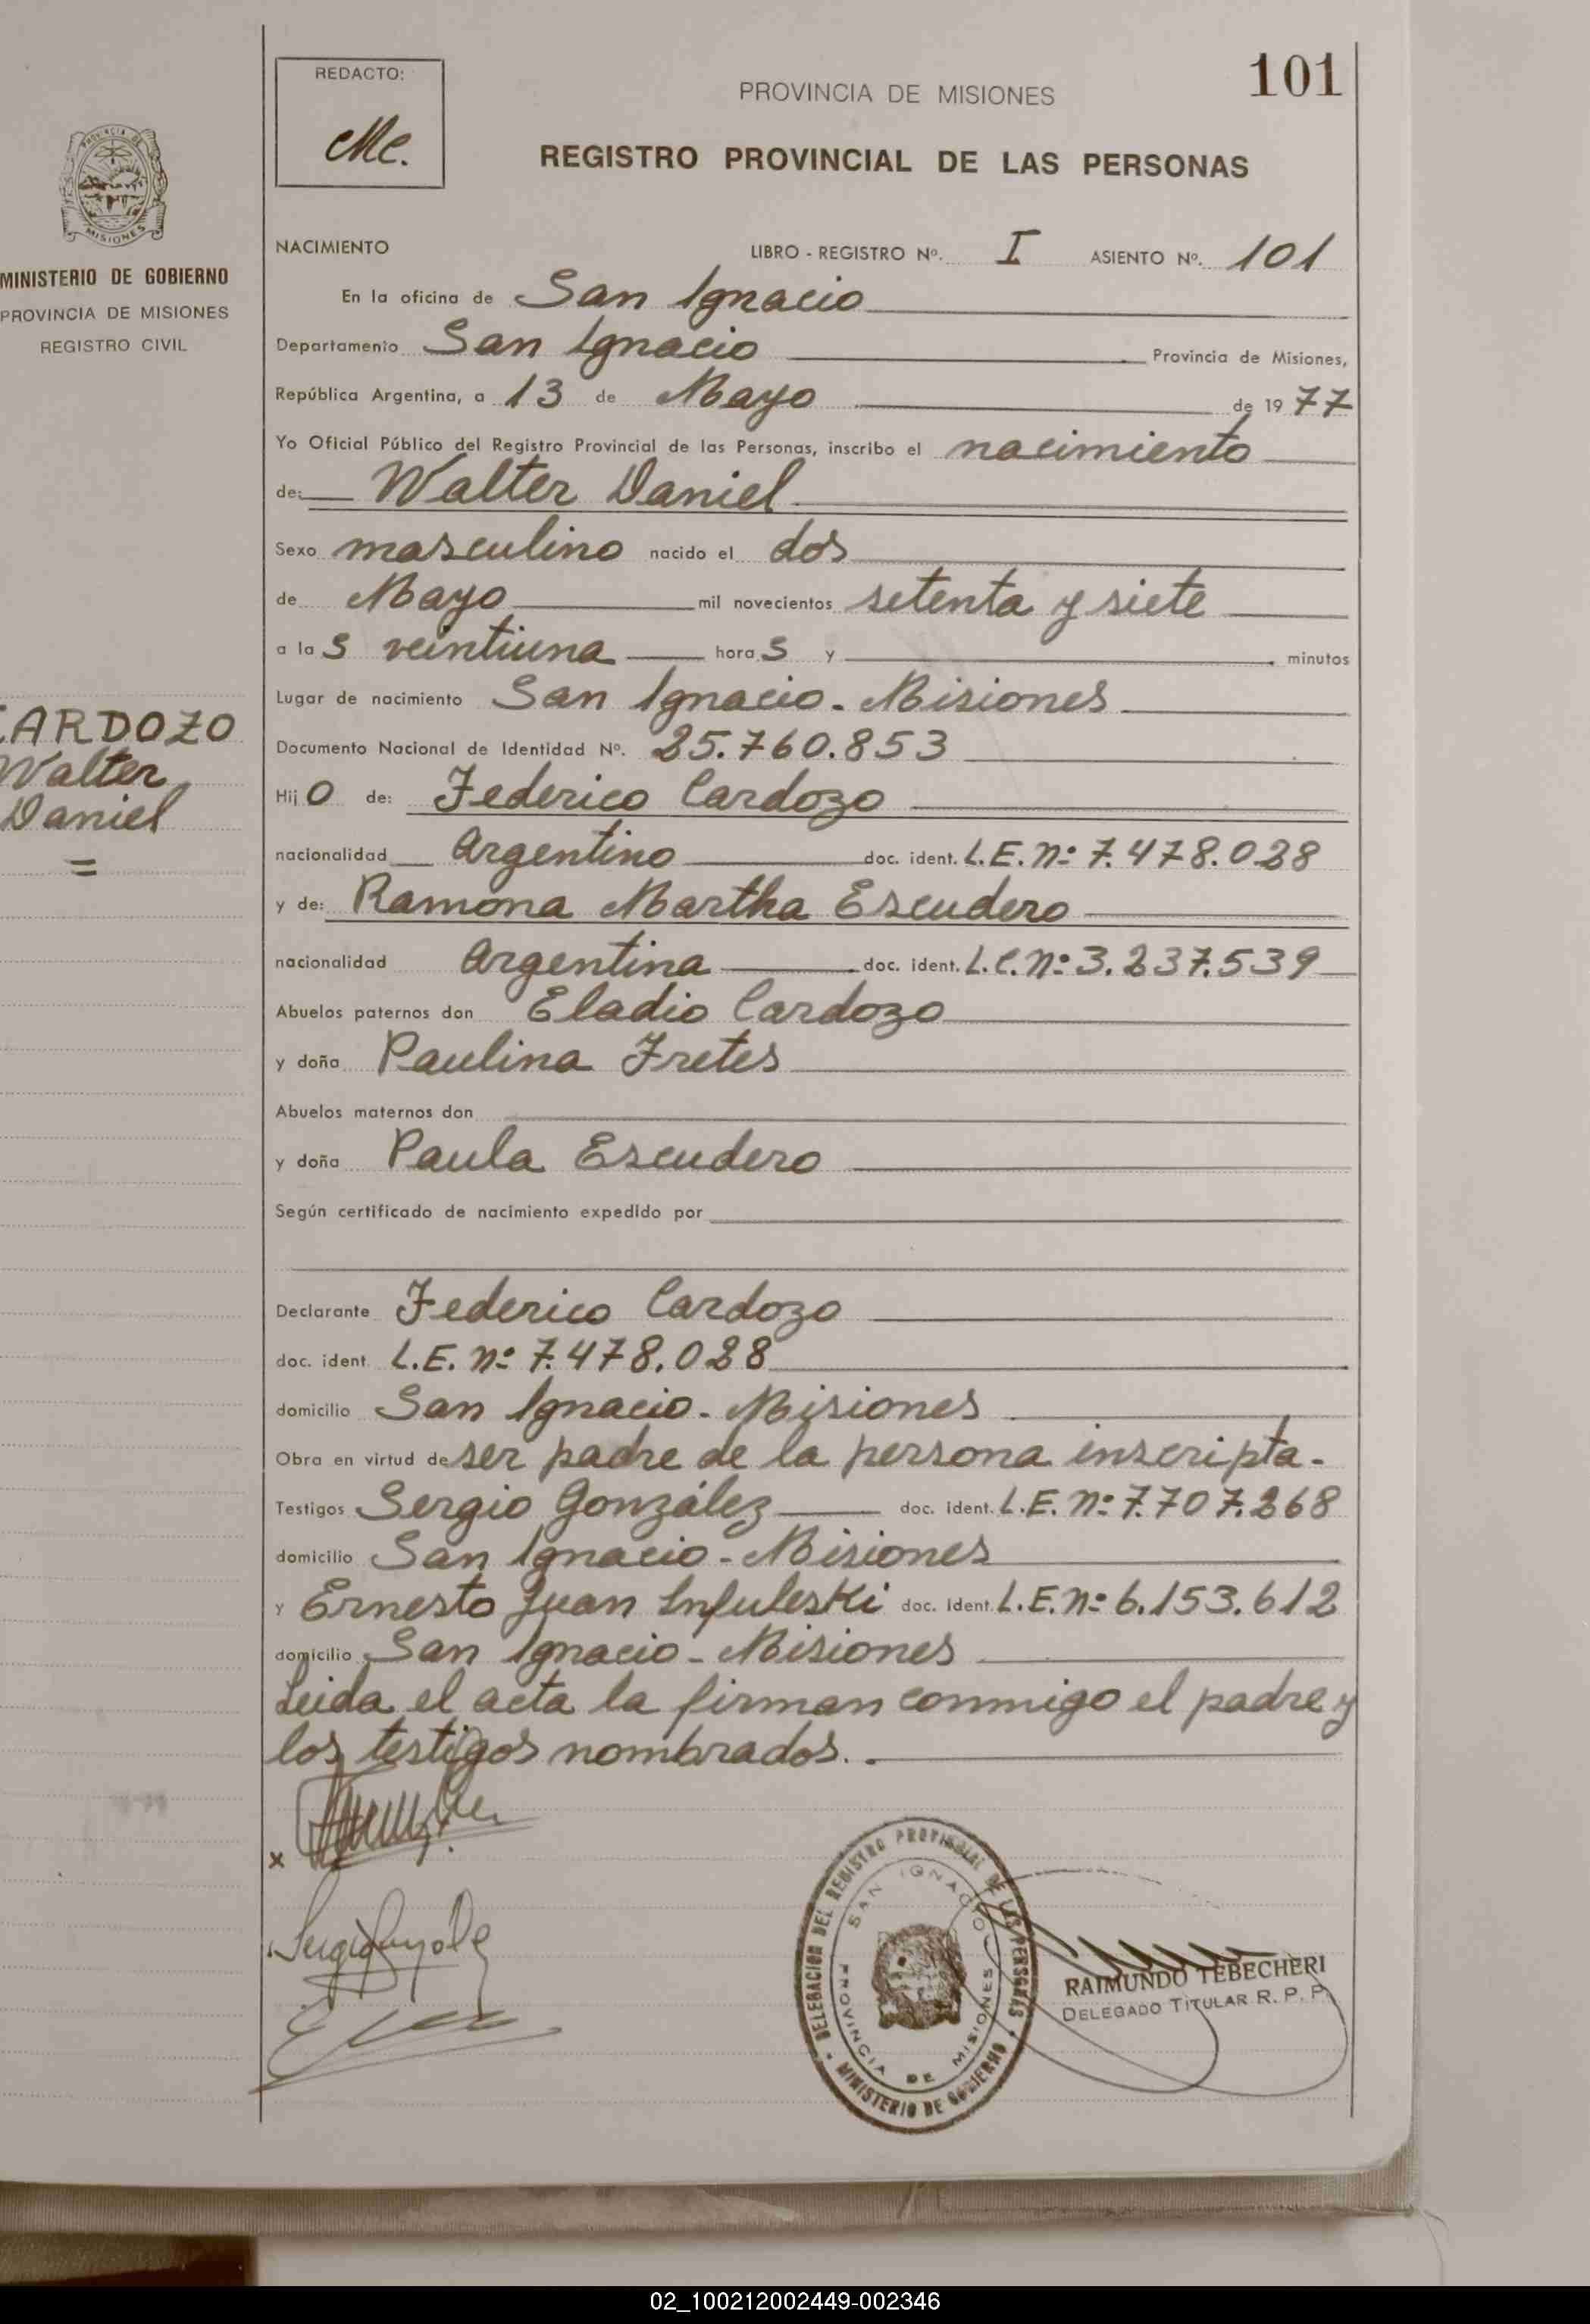 101
REDACTO:
Mc.
PROVINCIA DE MISIONES
REGISTRO PROVINCIAL DE LAS PERSONAS
PROVINCIA DE
MISIONES
MINISTERIO DE GOBIERNO
PROVINCIA DE MISIONES
REGISTRO CIVIL
NACIMIENTO LIBRO - REGISTRO Nº. I ASIENTO Nº. 101
En la oficina de San Ignacio
Departamento San Ignacio Provincia de Misiones,
República Argentina, a 13 de Mayo de 1977
Yo Oficial Público del Registro Provincial de las Personas, inscribo el nacimiento
de: Walter Daniel
Sexo masculino nacido el dos
de Mayo mil novecientos setenta y siete
a las veintiuna horas y minutos
Lugar de nacimiento San Ignacio - Misiones
CARDOZO
Walter
Daniel
=
Documento Nacional de Identidad Nº. 25.760.853
Hijo de: Federico Cardozo
nacionalidad Argentino doc. ident. L.E. nº 7.478.028
y de: Ramona Martha Escudero
nacionalidad Argentina doc. ident. L.C. nº 3.237.539
Abuelos paternos don Eladio Cardozo
y doña Paulina Fretes
Abuelos maternos don
y doña Paula Escudero
Según certificado de nacimiento expedido por
Declarante Federico Cardozo
doc. ident. L.E. nº 7.478.028
domicilio San Ignacio - Misiones
Obra en virtud de ser padre de la persona inscripta.
Testigos Sergio González doc. ident. L.E. nº 7.707.268
domicilio San Ignacio - Misiones
y Ernesto Juan Infuleski doc. ident. L.E. nº 6.153.612
domicilio San Ignacio - Misiones
Leida el acta la firman conmigo el padre y
los testigos nombrados.
x
DELEGACION DEL REGISTRO PROVINCIAL DE LAS PERSONAS
SAN IGNACIO
PROVINCIA DE MISIONES
MINISTERIO DE GOBIERNO
RAIMUNDO TEBECHERI
DELEGADO TITULAR R. P. P.
02_100212002449-002346